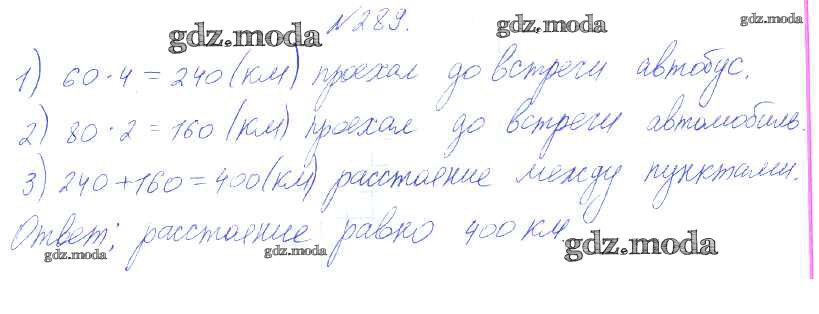 №289.
gdz.moda
gdz.moda
gdz.moda
1) 60·4=240 (км) проехал до встречи автобус.
2) 80·2=160 (км) проехал до встречи автомобиль.
3) 240+160=400(км) расстояние между пунктами.
Ответ: расстояние равно 400 км
gdz.moda
gdz.moda
gdz.moda
gdz.moda